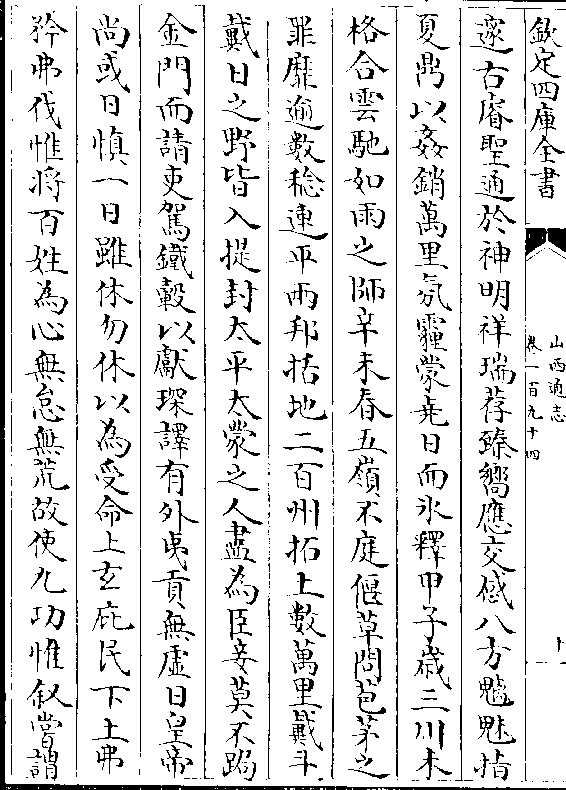 欽定四庫全書
山西通志
卷一百九十四
十
邃古睿聖通於神明祥瑞荐臻嚮應交感八方魑魅指
夏鼎以姦銷萬里氛霾蒙堯日而氷釋甲子歲三川未
格合雲馳如雨之師辛未春五嶺不庭偃草問苞茅之
罪靡逾數稔連平兩邦括地二百州拓土數萬里戴斗
戴日之野皆入提封太平太蒙之人盡為臣妾莫不蹋
金門而請吏駕鐵轂以獻琛譯有外夷貢無虛日皇帝
尚或日慎一日雖休勿休以為受命上玄庇民下土弗
矜弗伐惟將百姓為心無怠無荒故使九功惟叙嘗謂